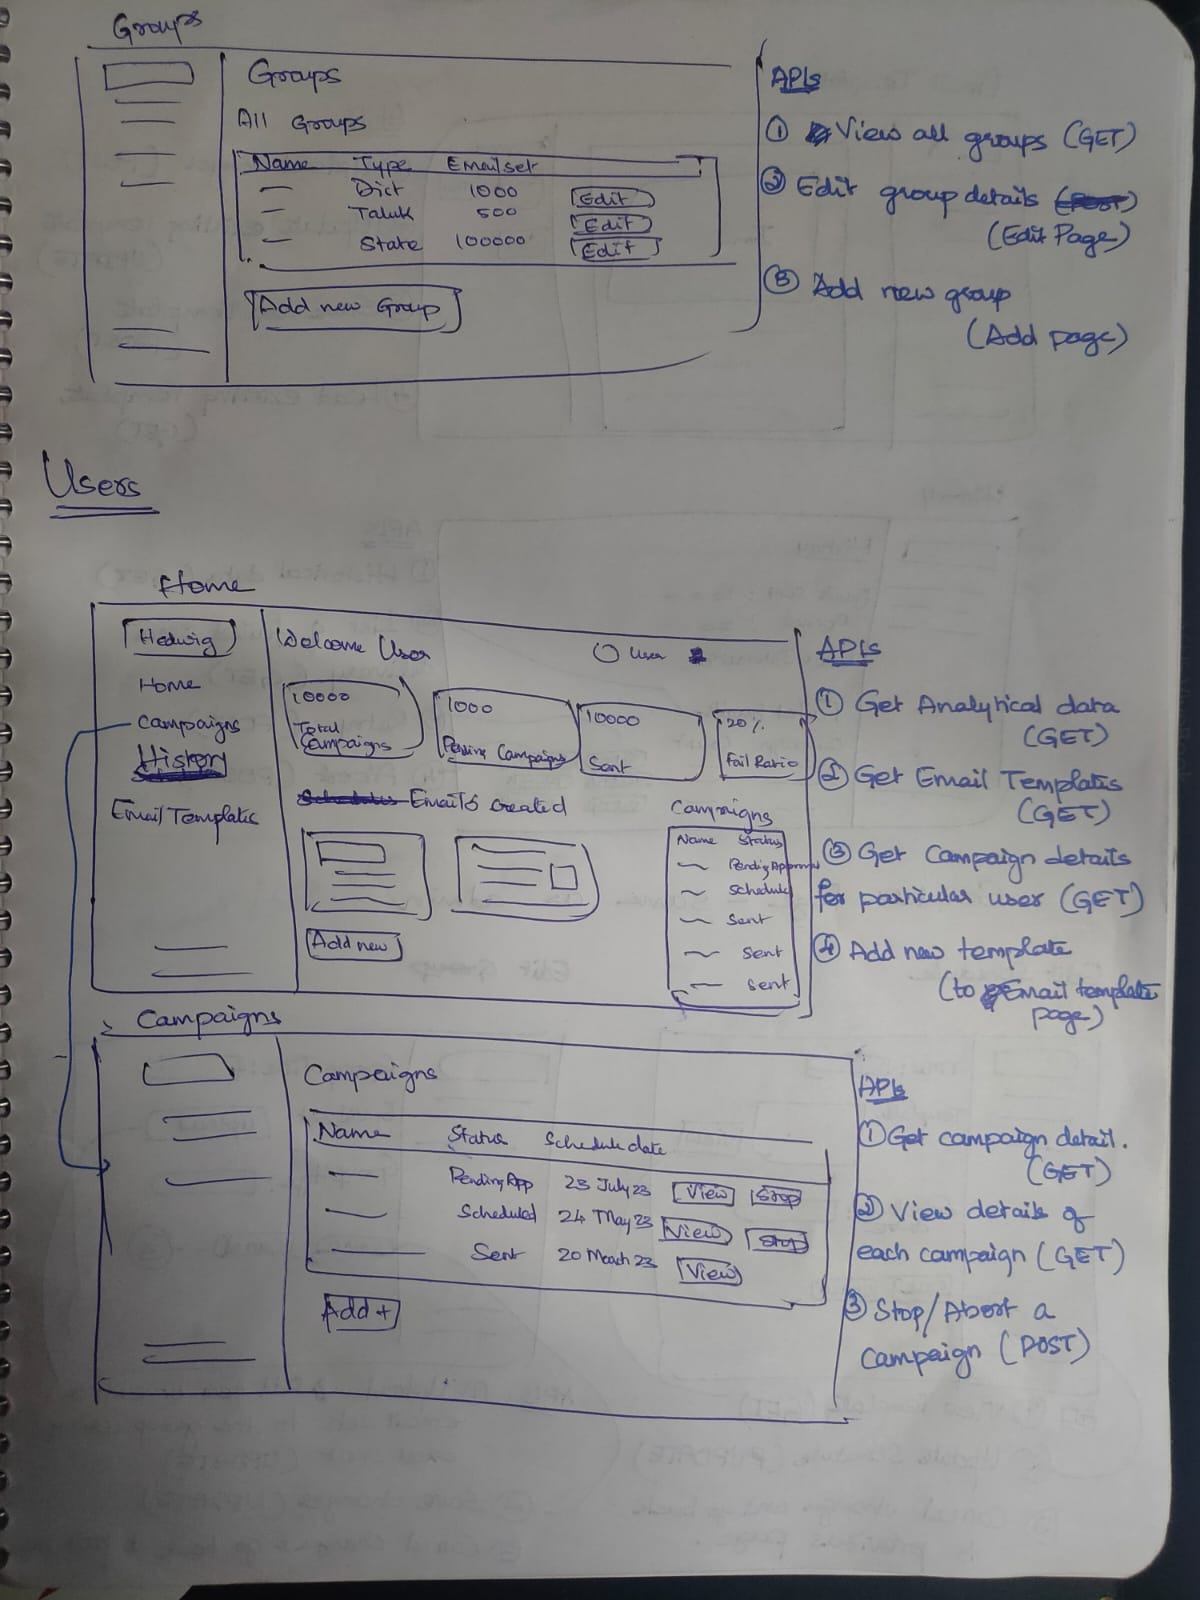 Groups
Groups
All Groups
Name Type Emailset
Dict 1000 Edit
Taluk 500 Edit
State 100000 Edit
Add new Group
APIs
① View all groups (GET)
② Edit group details (POST)
(Edit Page)
③ Add new group
(Add page)
Users
Home
Hedwig
Home
Campaigns
History
Email Templates
Welcome User
User
10000
Total
Campaigns
1000
Pending Campaigns
10000
Sent
20%
Fail Ratio
Schedules Emails created
Add new
Campaigns
Name Status
Pending Approval
Schedule
Sent
Sent
Sent
APIs
① Get Analytical data
(GET)
② Get Email Templates
(GET)
③ Get Campaign details
for particular user (GET)
④ Add new template
(to Email template
page)
Campaigns
Campaigns
Name Status Schedule date
Pending App 23 July 23 View Stop
Scheduled 24 May 23 View Stop
Sent 20 March 23 View
Add +
APIs
① Get campaign detail.
(GET)
② View details of
each campaign (GET)
③ Stop/Abort a
Campaign (POST)